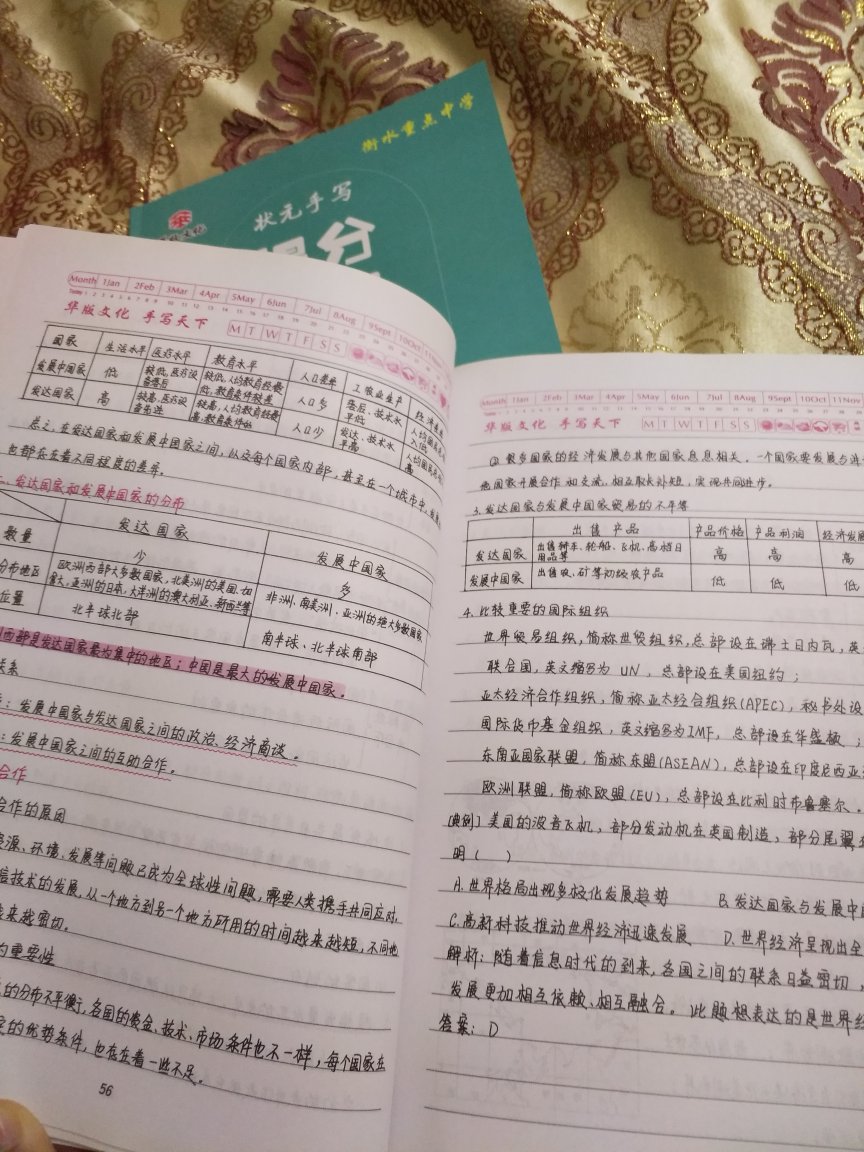 衡水重点中学
状元手写
Month 1Jan 2Feb 3Mar 4Apr 5May 6Jun 7Jul 8Aug 9Sept 10Oct
华版文化 手写天下 M T W T F S S
国家 生活水平 医疗水平 教育水平 人口差率 工农业生产
发展中国家 低 较低,医疗设备落后 较低,人均教育经费低,教育条件较差 人口多 落后、技术水平低
发达国家 高 较高,医疗设备先进 较高,人均教育经费高,教育条件好 人口少 发达、技术水平高
总之,在发达国家和发展中国家之间,从这每个国家内部,甚至在一个城市中,
也都存在着不同程度的差异。
、发达国家和发展中国家的分布
发达国家 发展中国家
数量 少 多
分布地区 欧洲西部大多数国家,北美洲的美国、加拿大,亚洲的日本,大洋洲的澳大利亚、新西兰等 非洲、南美洲、亚洲的绝大多数国家
位置 北半球北部 南半球、北半球南部
西部是发达国家最为集中的地区;中国是最大的发展中国家。
联系
:发展中国家与发达国家之间的政治、经济商谈。
:发展中国家之间的互助合作。
合作
合作的原因
源、环境、发展等问题已成为全球性问题,需要人类携手共同应对。
信技术的发展,从一个地方到另一个地方所用的时间越来越短,不同地
越来越密切。
的重要性
的分布不平衡,各国的资金、技术、市场条件也不一样,每个国家在
的优势条件,也存在着一些不足。
56
Month 1Jan 2Feb 3Mar 4Apr 5May 6Jun 7Jul 8Aug 9Sept 10Oct 11Nov
华版文化 手写天下 M T W T F S S
②很多国家的经济发展与其他国家息息相关。一个国家要发展与进
他国家开展合作和交流,相互取长补短,实现共同进步。
3.发达国家与发展中国家贸易的不平等
出售产品 产品价格 产品利润 经济发展
发达国家 出售轿车、轮船、飞机、高档日用品等 高 高 高
发展中国家 出售农、矿等初级农产品 低 低 低
4.比较重要的国际组织
世界贸易组织,简称世贸组织,总部设在瑞士日内瓦,英
联合国,英文缩写为UN,总部设在美国纽约;
亚太经济合作组织,简称亚太经合组织(APEC),秘书处设
国际货币基金组织,英文缩写为IMF,总部设在华盛顿;
东南亚国家联盟,简称东盟(ASEAN),总部设在印度尼西亚
欧洲联盟,简称欧盟(EU),总部设在比利时布鲁塞尔。
[典例]美国的波音飞机,部分发动机在英国制造,部分尾翼在
明( )
A.世界格局出现多极化发展趋势 B.发达国家与发展中
C.高新科技推动世界经济迅速发展 D.世界经济呈现出全
解析:随着信息时代的到来,各国之间的联系日益密切,
发展更加相互依赖、相互融合。此题想表达的是世界经
答案:D